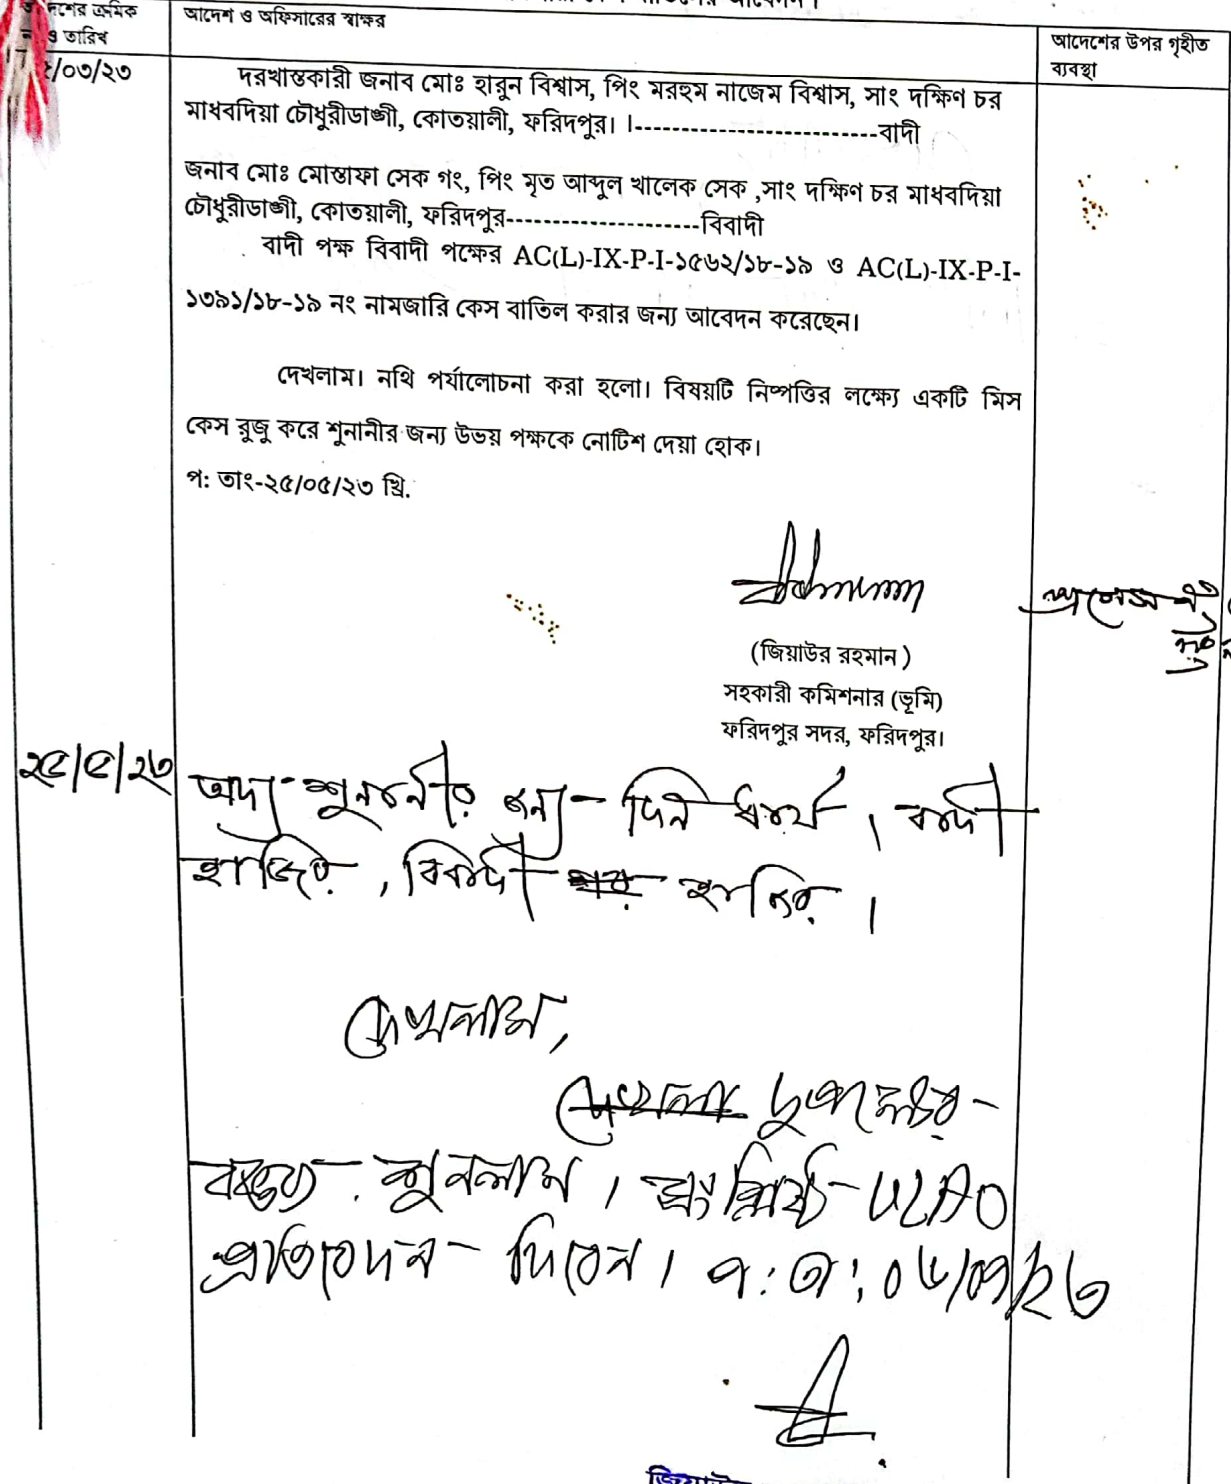 আদেশ ও অফিসারের স্বাক্ষর
ও তারিখ
আদেশের উপর গৃহীত
ব্যবস্থা
/০৩/২৩
দরখাস্তকারী জনাব মোঃ হারুন বিশ্বাস, পিং মরহুম নাজেম বিশ্বাস, সাং দক্ষিণ চর
মাধবদিয়া চৌধুরীডাঙ্গী, কোতয়ালী, ফরিদপুর। ।-------------------------বাদী
জনাব মোঃ মোস্তাফা সেক গং, পিং মৃত আব্দুল খালেক সেক ,সাং দক্ষিণ চর মাধবদিয়া
চৌধুরীডাঙ্গী, কোতয়ালী, ফরিদপুর--------------------বিবাদী
বাদী পক্ষ বিবাদী পক্ষের AC(L)-IX-P-I-১৫৬২/১৮-১৯ ও AC(L)-IX-P-I-
১৩৯১/১৮-১৯ নং নামজারি কেস বাতিল করার জন্য আবেদন করেছেন।
দেখলাম। নথি পর্যালোচনা করা হলো। বিষয়টি নিষ্পত্তির লক্ষ্যে একটি মিস
কেস রুজু করে শুনানীর জন্য উভয় পক্ষকে নোটিশ দেয়া হোক।
প: তাং-২৫/০৫/২৩ খ্রি.
(জিয়াউর রহমান)
সহকারী কমিশনার (ভূমি)
ফরিদপুর সদর, ফরিদপুর।
২৫/৫/২৩
অদ্য শুনানীর জন্য দিন ধার্য। বাদী
হাজির, বিবাদী হাজির।
দেখলাম,
দুপক্ষের
বক্তব্য শুনলাম। সংশ্লিষ্ট ULAO
প্রতিবেদন দিবেন। প:তা: ০৬/০৭/২৩